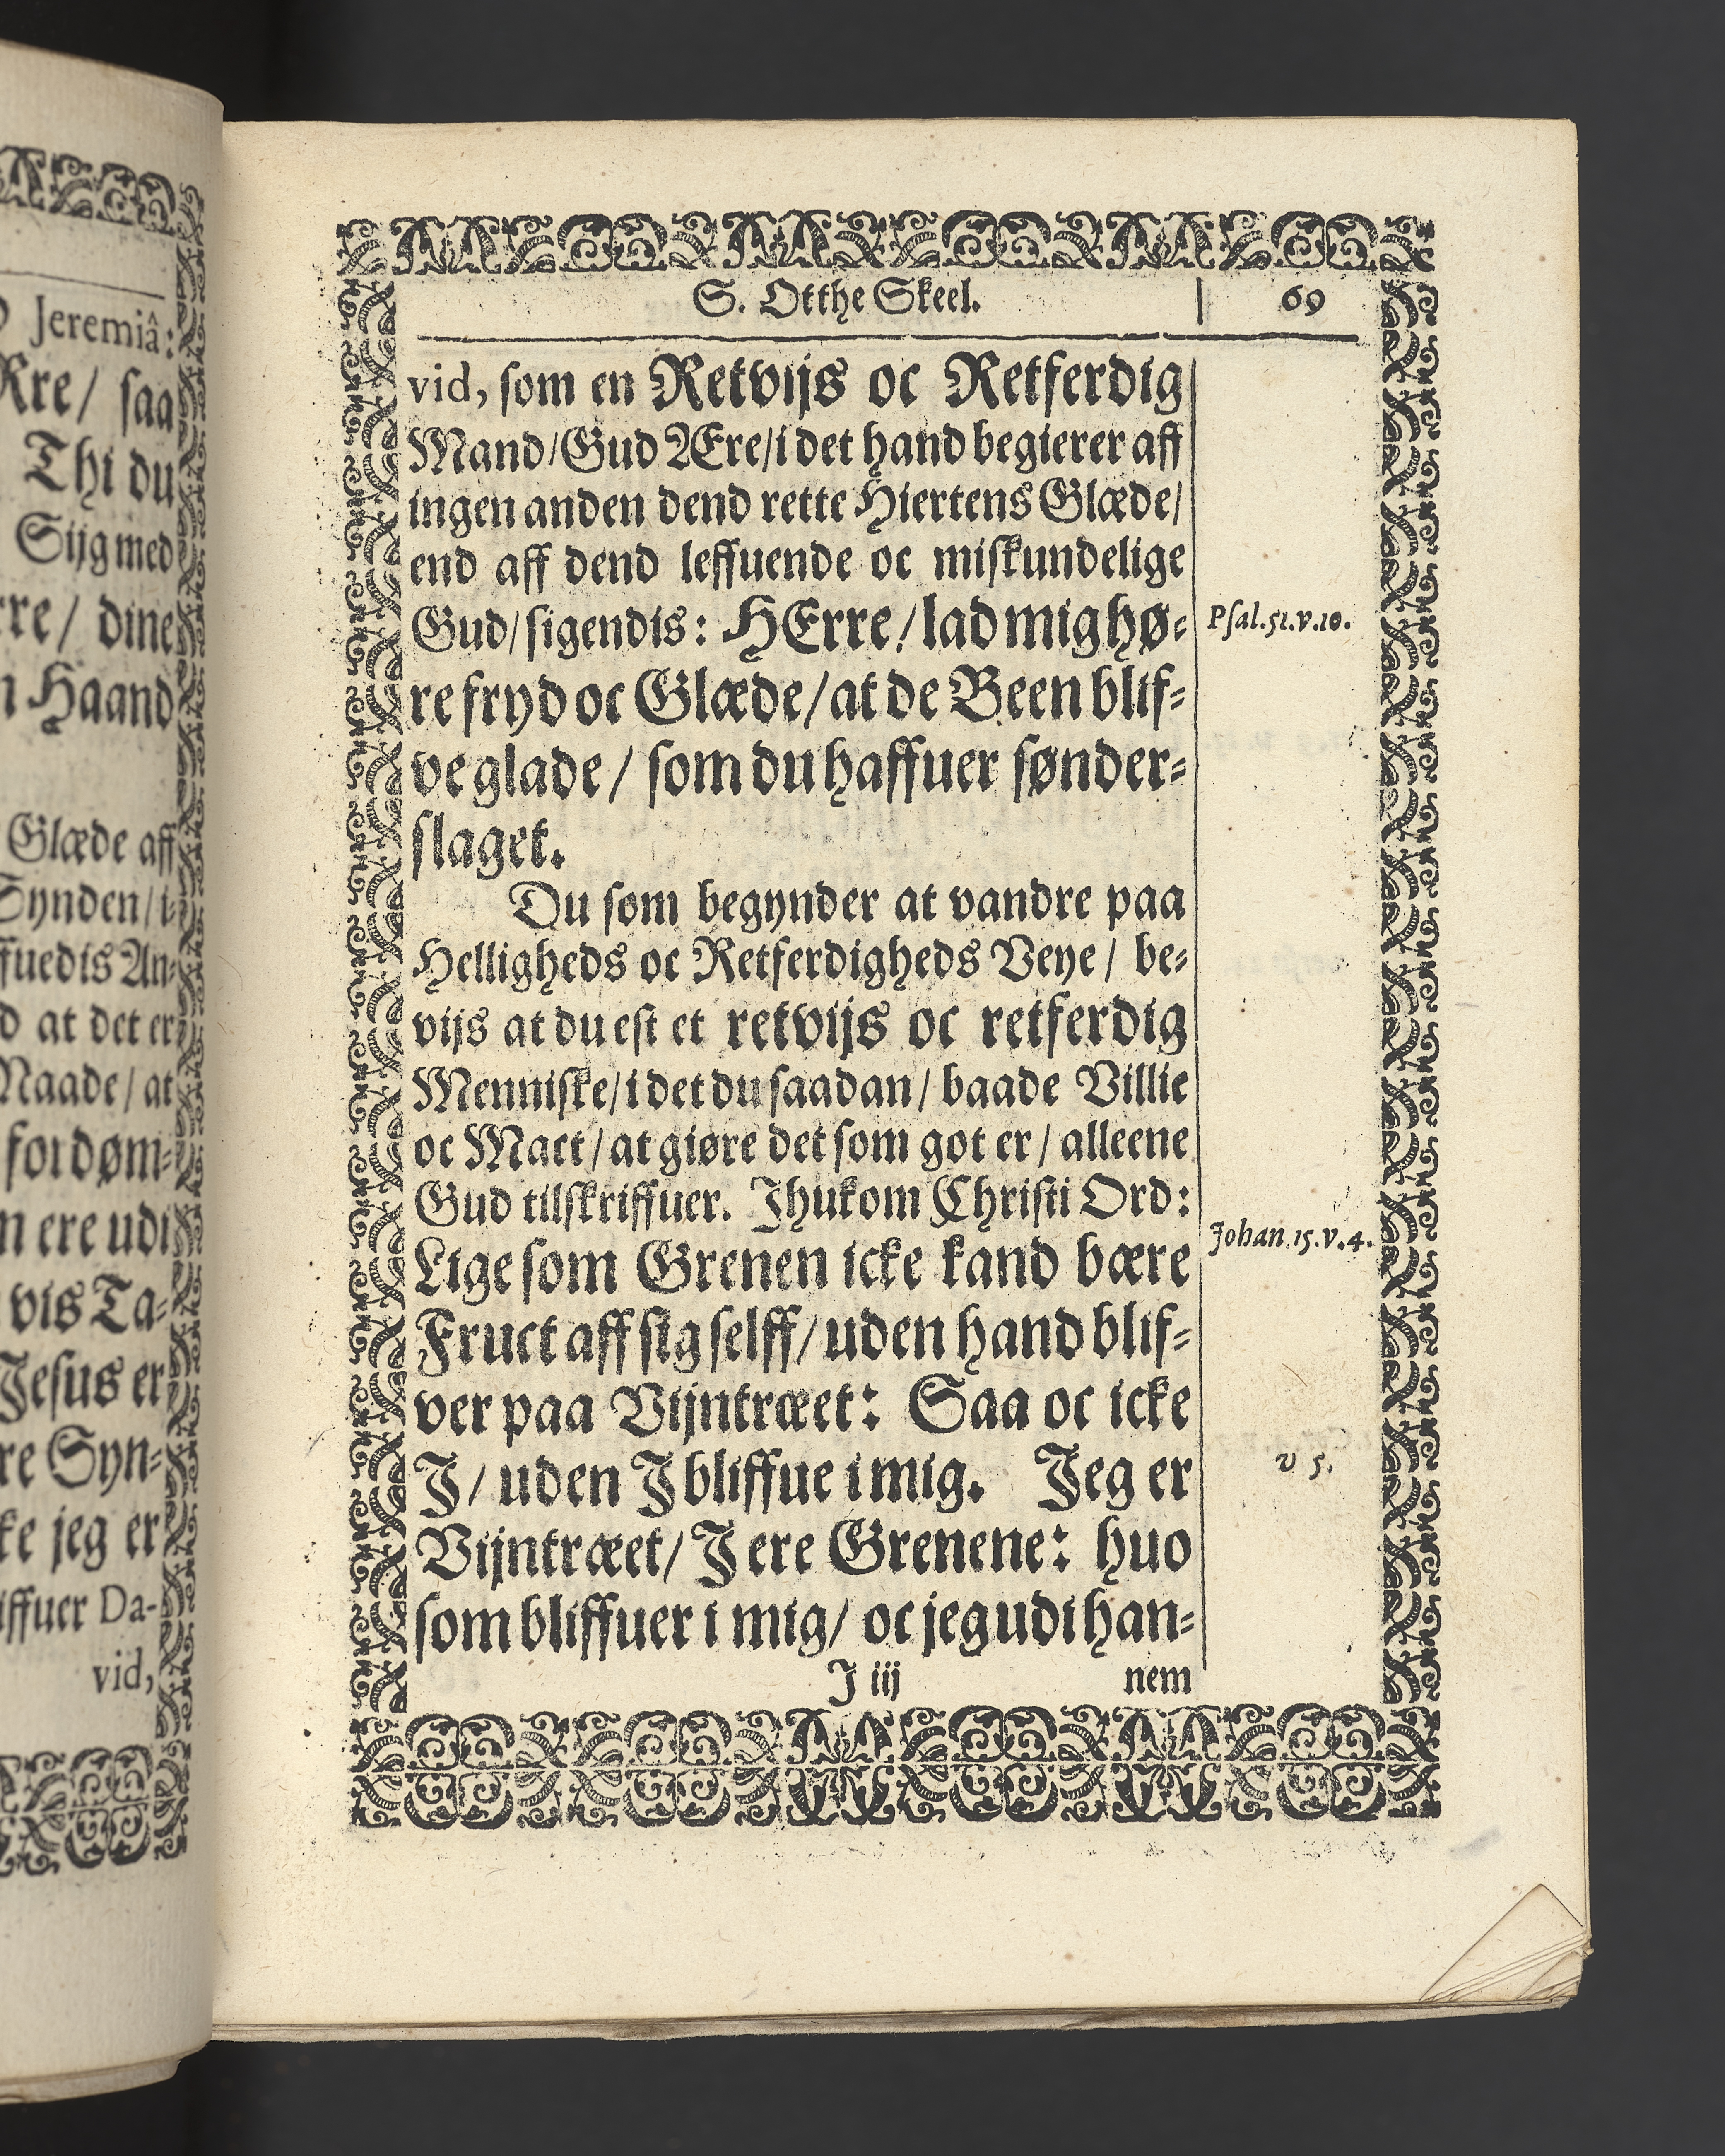 Jeremiâ:
Rre/ saa
Thi du
Siig med
rre/ dine
n Haand
Glæde aff
Synden/ i-
ffuedis An-
d at det er
Naade/ at
fordøm-
n ere udi
vis Ta-
Jesus er
re Syn-
ke jeg er
iffuer Da-
vid,
S. Otthe Skeel. 69
vid, som en Retvijs oc Retferdig
Mand/ Gud Ære/ i det hand begierer aff
ingen anden dend rette Hiertens Glæde/
end aff dend leffuende oc miskundelige
Gud/ sigendis: HErre/ lad mig hø-
Psal. 51. v. 10.
re fryd oc Glæde/ at de Been blif-
ve glade/ som du haffuer sønder-
slaget.
Du som begynder at vandre paa
Helligheds oc Retferdigheds Veye/ be-
vijs at du est et retvijs oc retferdig
Menniske/ i det du saadan/ baade Villie
oc Mact/ at giøre det som got er/ alleene
Gud tilskriffuer. Jhukom Christi Ord:
Johan. 15. v. 4.
Lige som Grenen icke kand bære
Fruct aff sig selff/ uden hand blif-
ver paa Vijntræet: Saa oc icke
J/ uden J bliffue i mig. Jeg er
v 5.
Vijntræet/ J ere Grenene: huo
som bliffuer i mig/ oc jeg udi han-
J iij nem